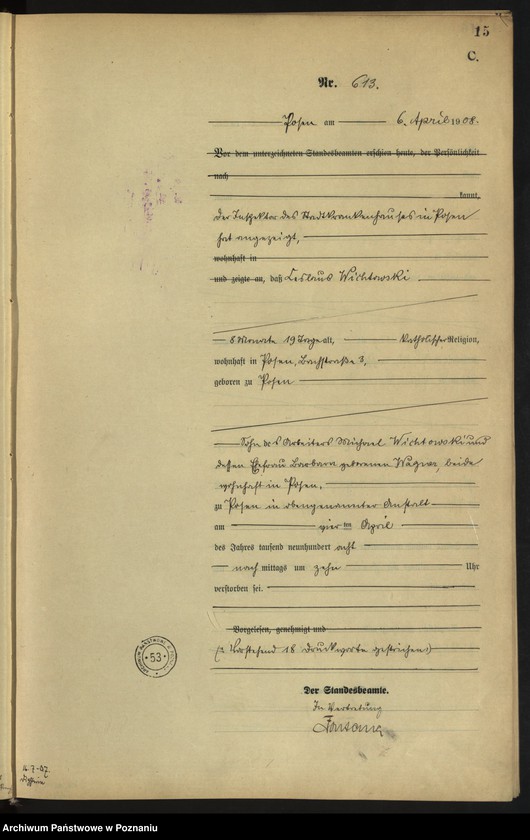 15
C.
Nr. 613.
Posen am 6. April 1908.
Vor dem unterzeichneten Standesbeamten erschien heute, der Persönlichkeit
nach
kannt,
Der Inspektor des Stadtkrankenhauses in Posen
hat angezeigt,
wohnhaft in
und zeigte an, daß Ceslaus Wichtowski
8 Monate 19 Tage alt, katholischer Religion,
wohnhaft in Posen, Bachstraße 3,
geboren zu Posen
Sohn des Arbeiters Michael Wichtowski und
dessen Ehefrau Barbara geborenen, beide
wohnhaft in Posen.
zu Posen in obengenannter Anstalt
am vierten April
des Jahres tausend neunhundert acht
nachmittags um zehn Uhr
verstorben sei.
Vorgelesen, genehmigt und
(Vorstehend 18 Druckworte gestrichen.)
Der Standesbeamte.
In Vertretung
53
Archiwum Państwowe w Poznaniu